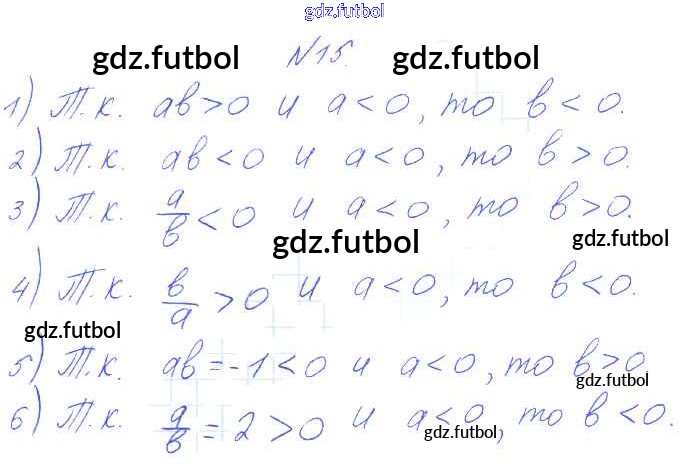 gdz.futbol
№15.
gdz.futbol gdz.futbol
1) Т.к. ab>0 и a<0, то b<0.
2) Т.к. ab<0 и a<0, то b>0.
3) Т.к. a/b<0 и a<0, то b>0.
gdz.futbol gdz.futbol
4) Т.к. b/a>0 и a<0, то b<0.
gdz.futbol
5) Т.к. ab=-1<0 и a<0, то b>0
gdz.futbol
6) Т.к. a/b=2>0 и a<0, то b<0.
gdz.futbol